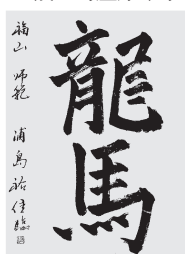 龍馬
福山 師範 浦島祐佳臨